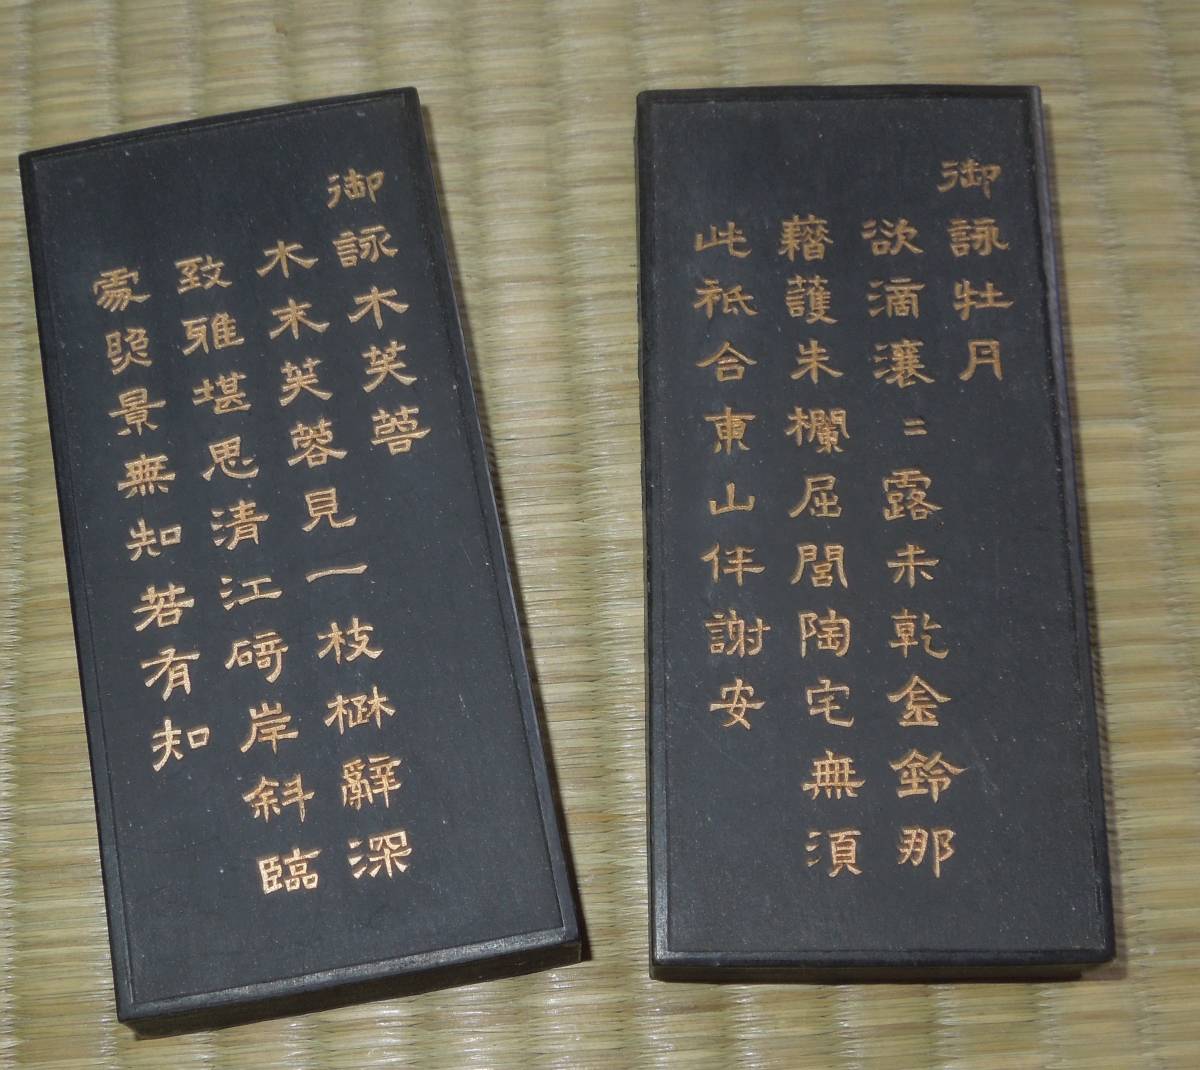 御詠牡丹
欲滴瀼〻露未乾金鈴那
藉護朱欄屈閭陶宅無須
此祇合東山伴謝安
御詠木芙蓉
木末芙蓉見一枝楚辭深
致雅堪思清江碕岸斜臨
處照景無知若有知